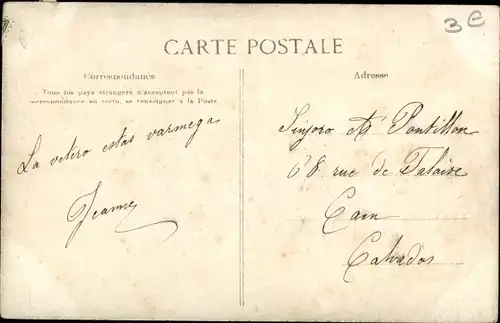 3€
CARTE POSTALE
Correspondance
Tous les pays étrangers n'acceptent pas la
correspondance au recto, se renseigner à la Poste
La vetero estas varmega
Jeanne
Adresse
Sinjoro Pontillon
68 rue de Falaise
Caen
Calvados